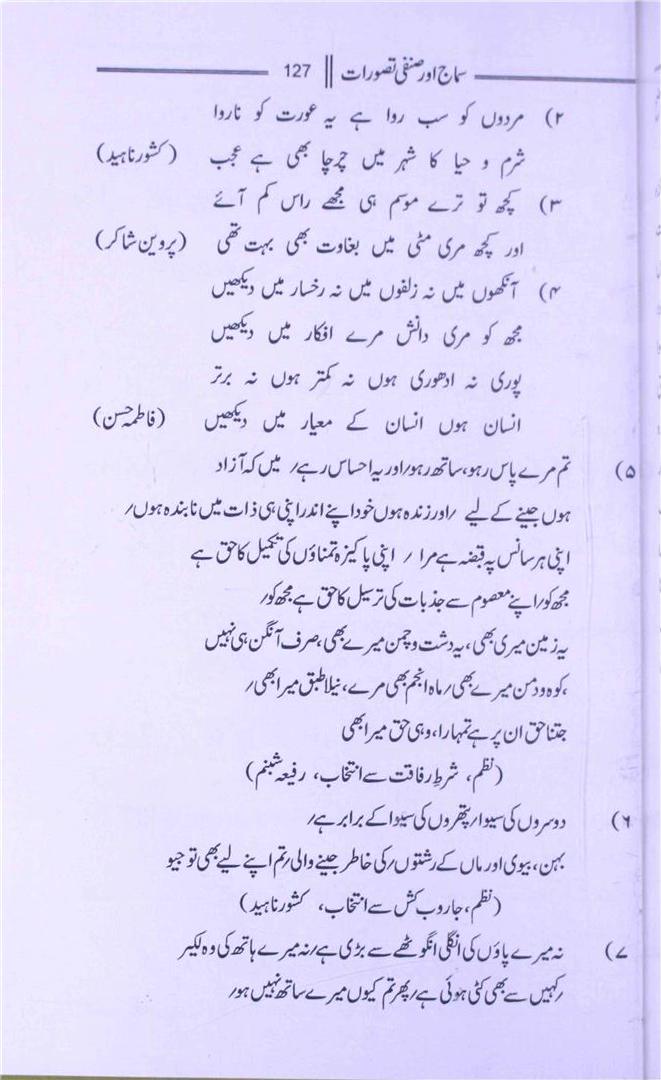 سماج اور صنفی تصورات || 127
۲) مردوں کو سب روا ہے یہ عورت کو ناروا
شرم و حیا کا شہر میں چرچا بھی ہے عجب (کشور ناہید)
۳) کچھ تو ترے موسم ہی مجھے راس کم آئے
اور کچھ مری مٹی میں بغاوت بھی بہت تھی (پروین شاکر)
۴) آنکھوں میں نہ زلفوں میں نہ رخسار میں دیکھیں
مجھ کو مری دانش مرے افکار میں دیکھیں
پوری نہ ادھوری ہوں نہ کمتر ہوں نہ برتر
انسان ہوں انسان کے معیار میں دیکھیں (فاطمہ حسن)
۵) تم مرے پاس رہو، ساتھ رہو/ اور یہ احساس رہے/ میں کہ آزاد
ہوں جینے کے لیے / اور زندہ ہوں خود اپنے اندر اپنی ہی ذات میں تابندہ ہوں/
اپنی ہر سانس پہ قبضہ ہے مرا / اپنی پاکیزہ تمناؤں کی تکمیل کا حق ہے
مجھ کو/ اپنے معصوم سے جذبات کی ترسیل کا حق ہے مجھ کو/
یہ زمین میری بھی، یہ دشت و چمن میرے بھی، صرف آنگن ہی نہیں
،کوہ و دمن میرے بھی/ ماہ انجم بھی مرے، نیلا طبق میرا بھی/
جتنا حق ان پر ہے تمہارا، وہی حق میرا بھی
(نظم، شرطِ رفاقت سے انتخاب، رفیعہ شبنم)
۶) دوسروں کی سیوا/ پتھروں کی سیوا کے برابر ہے/
بہن، بیوی اور ماں کے رشتوں/ کی خاطر جینے والی/ تم اپنے لیے بھی تو جیو
(نظم، جاروب کش سے انتخاب، کشور ناہید)
۷) نہ میرے پاؤں کی انگلی انگوٹھے سے بڑی ہے/ نہ میرے ہاتھ کی وہ لکیر
/کہیں سے بھی کٹی ہوئی ہے/ پھر تم کیوں میرے ساتھ نہیں ہو/